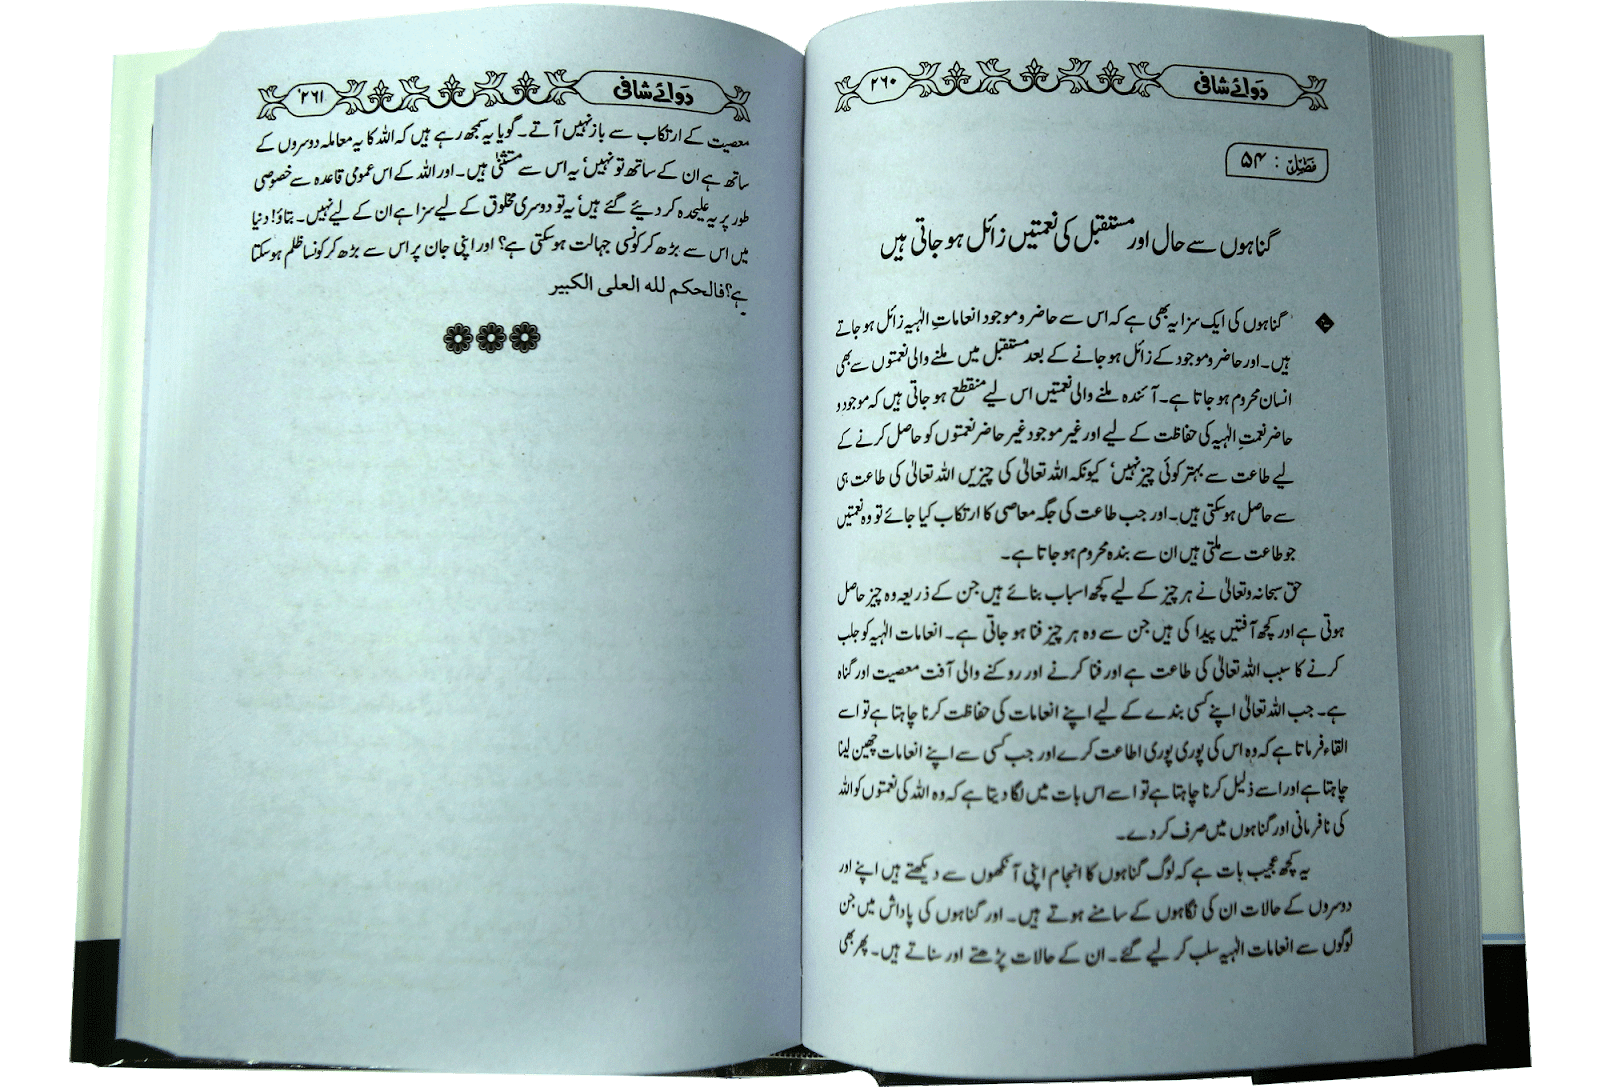 دوائے شافی ۲۶۰
فصل : ۵۴
گناہوں سے حال اور مستقبل کی نعمتیں زائل ہو جاتی ہیں
گناہوں کی ایک سزا یہ بھی ہے کہ اس سے حاضر و موجود انعاماتِ الٰہیہ زائل ہو جاتے
ہیں۔ اور حاضر و موجود کے زائل ہو جانے کے بعد مستقبل میں ملنے والی نعمتوں سے بھی
انسان محروم ہو جاتا ہے۔ آئندہ ملنے والی نعمتیں اس لیے منقطع ہو جاتی ہیں کہ موجود و
حاضر نعمتِ الٰہیہ کی حفاظت کے لیے اور غیر موجود غیر حاضر نعمتوں کو حاصل کرنے کے
لیے طاعت سے بہتر کوئی چیز نہیں‘ کیونکہ اللہ تعالیٰ کی چیزیں اللہ تعالیٰ کی طاعت ہی
سے حاصل ہو سکتی ہیں۔ اور جب طاعت کی جگہ معاصی کا ارتکاب کیا جائے تو وہ نعمتیں
جو طاعت سے ملتی ہیں ان سے بندہ محروم ہو جاتا ہے۔
حق سبحانہ وتعالیٰ نے ہر چیز کے لیے کچھ اسباب بنائے ہیں جن کے ذریعہ وہ چیز حاصل
ہوتی ہے اور کچھ آفتیں پیدا کی ہیں جن سے وہ ہر چیز فنا ہو جاتی ہے۔ انعامات الٰہیہ کو جلب
کرنے کا سبب اللہ تعالیٰ کی طاعت ہے اور فنا کرنے اور روکنے والی آفت معصیت اور گناہ
ہے۔ جب اللہ تعالیٰ اپنے کسی بندے کے لیے اپنے انعامات کی حفاظت کرنا چاہتا ہے تو اسے
القاء فرماتا ہے کہ وہ اس کی پوری پوری اطاعت کرے اور جب کسی سے اپنے انعامات چھین لینا
چاہتا ہے اور اسے ذلیل کرنا چاہتا ہے تو اسے اس بات میں لگا دیتا ہے کہ وہ اللہ کی نعمتوں کو اللہ
کی نافرمانی اور گناہوں میں صرف کر دے۔
یہ کچھ عجیب بات ہے کہ لوگ گناہوں کا انجام اپنی آنکھوں سے دیکھتے ہیں اپنے اور
دوسروں کے حالات ان کی نگاہوں کے سامنے ہوتے ہیں۔ اور گناہوں کی پاداش میں جن
لوگوں سے انعامات الٰہیہ سلب کر لیے گئے۔ ان کے حالات پڑھتے اور سناتے ہیں۔ پھر بھی
دوائے شافی ۲۶۱
معصیت کے ارتکاب سے باز نہیں آتے۔ گویا یہ سمجھ رہے ہیں کہ اللہ کا یہ معاملہ دوسروں کے
ساتھ ہے ان کے ساتھ تو نہیں‘ یہ اس سے مستثنیٰ ہیں۔ اور اللہ کے اس عمومی قاعدہ سے خصوصی
طور پر یہ علیحدہ کر دیئے گئے ہیں‘ یہ تو دوسری مخلوق کے لیے سزا ہے ان کے لیے نہیں۔ بتاؤ! دنیا
میں اس سے بڑھ کر کونسی جہالت ہو سکتی ہے؟ اور اپنی جان پر اس سے بڑھ کر کونسا ظلم ہو سکتا
ہے؟ فالحکم للہ العلی الکبیر